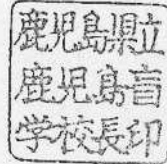 鹿児島県立
鹿児島盲
学校長印